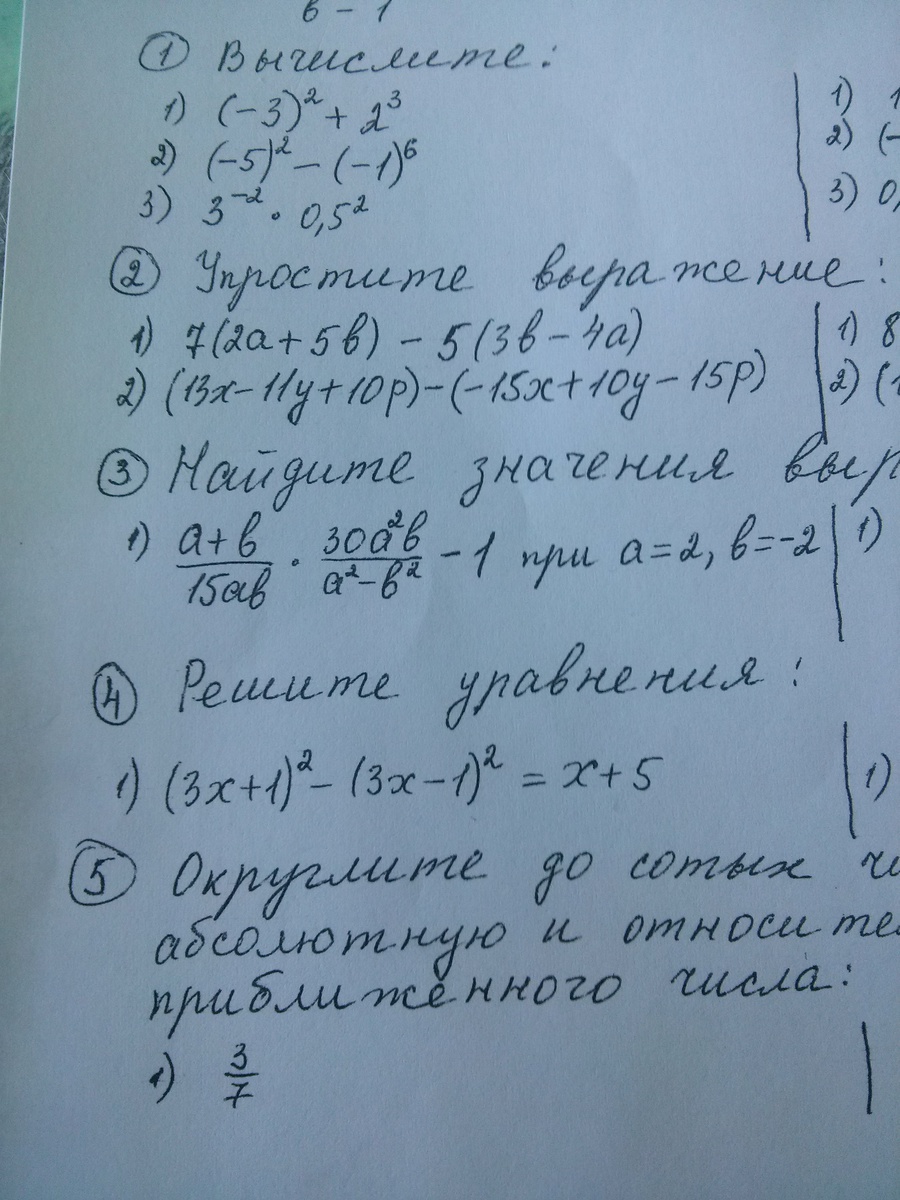 в - 1
① Вычислите:
1) (-3)² + 2³
2) (-5)² - (-1)⁶
3) 3⁻² · 0,5²
1) 1
2) (-
3) 0,
② Упростите выражение:
1) 7(2a + 5в) - 5(3в - 4a)
2) (13x - 11y + 10p) - (-15x + 10y - 15p)
1) 8
2) (1
③ Найдите значения выр
1) (a + в)/(15aв) · (30a²в)/(a² - в²) - 1 при a = 2, в = -2
1)
④ Решите уравнения:
1) (3x + 1)² - (3x - 1)² = x + 5
1)
⑤ Округлите до сотых чи
абсолютную и относител
приближённого числа:
1) 3/7